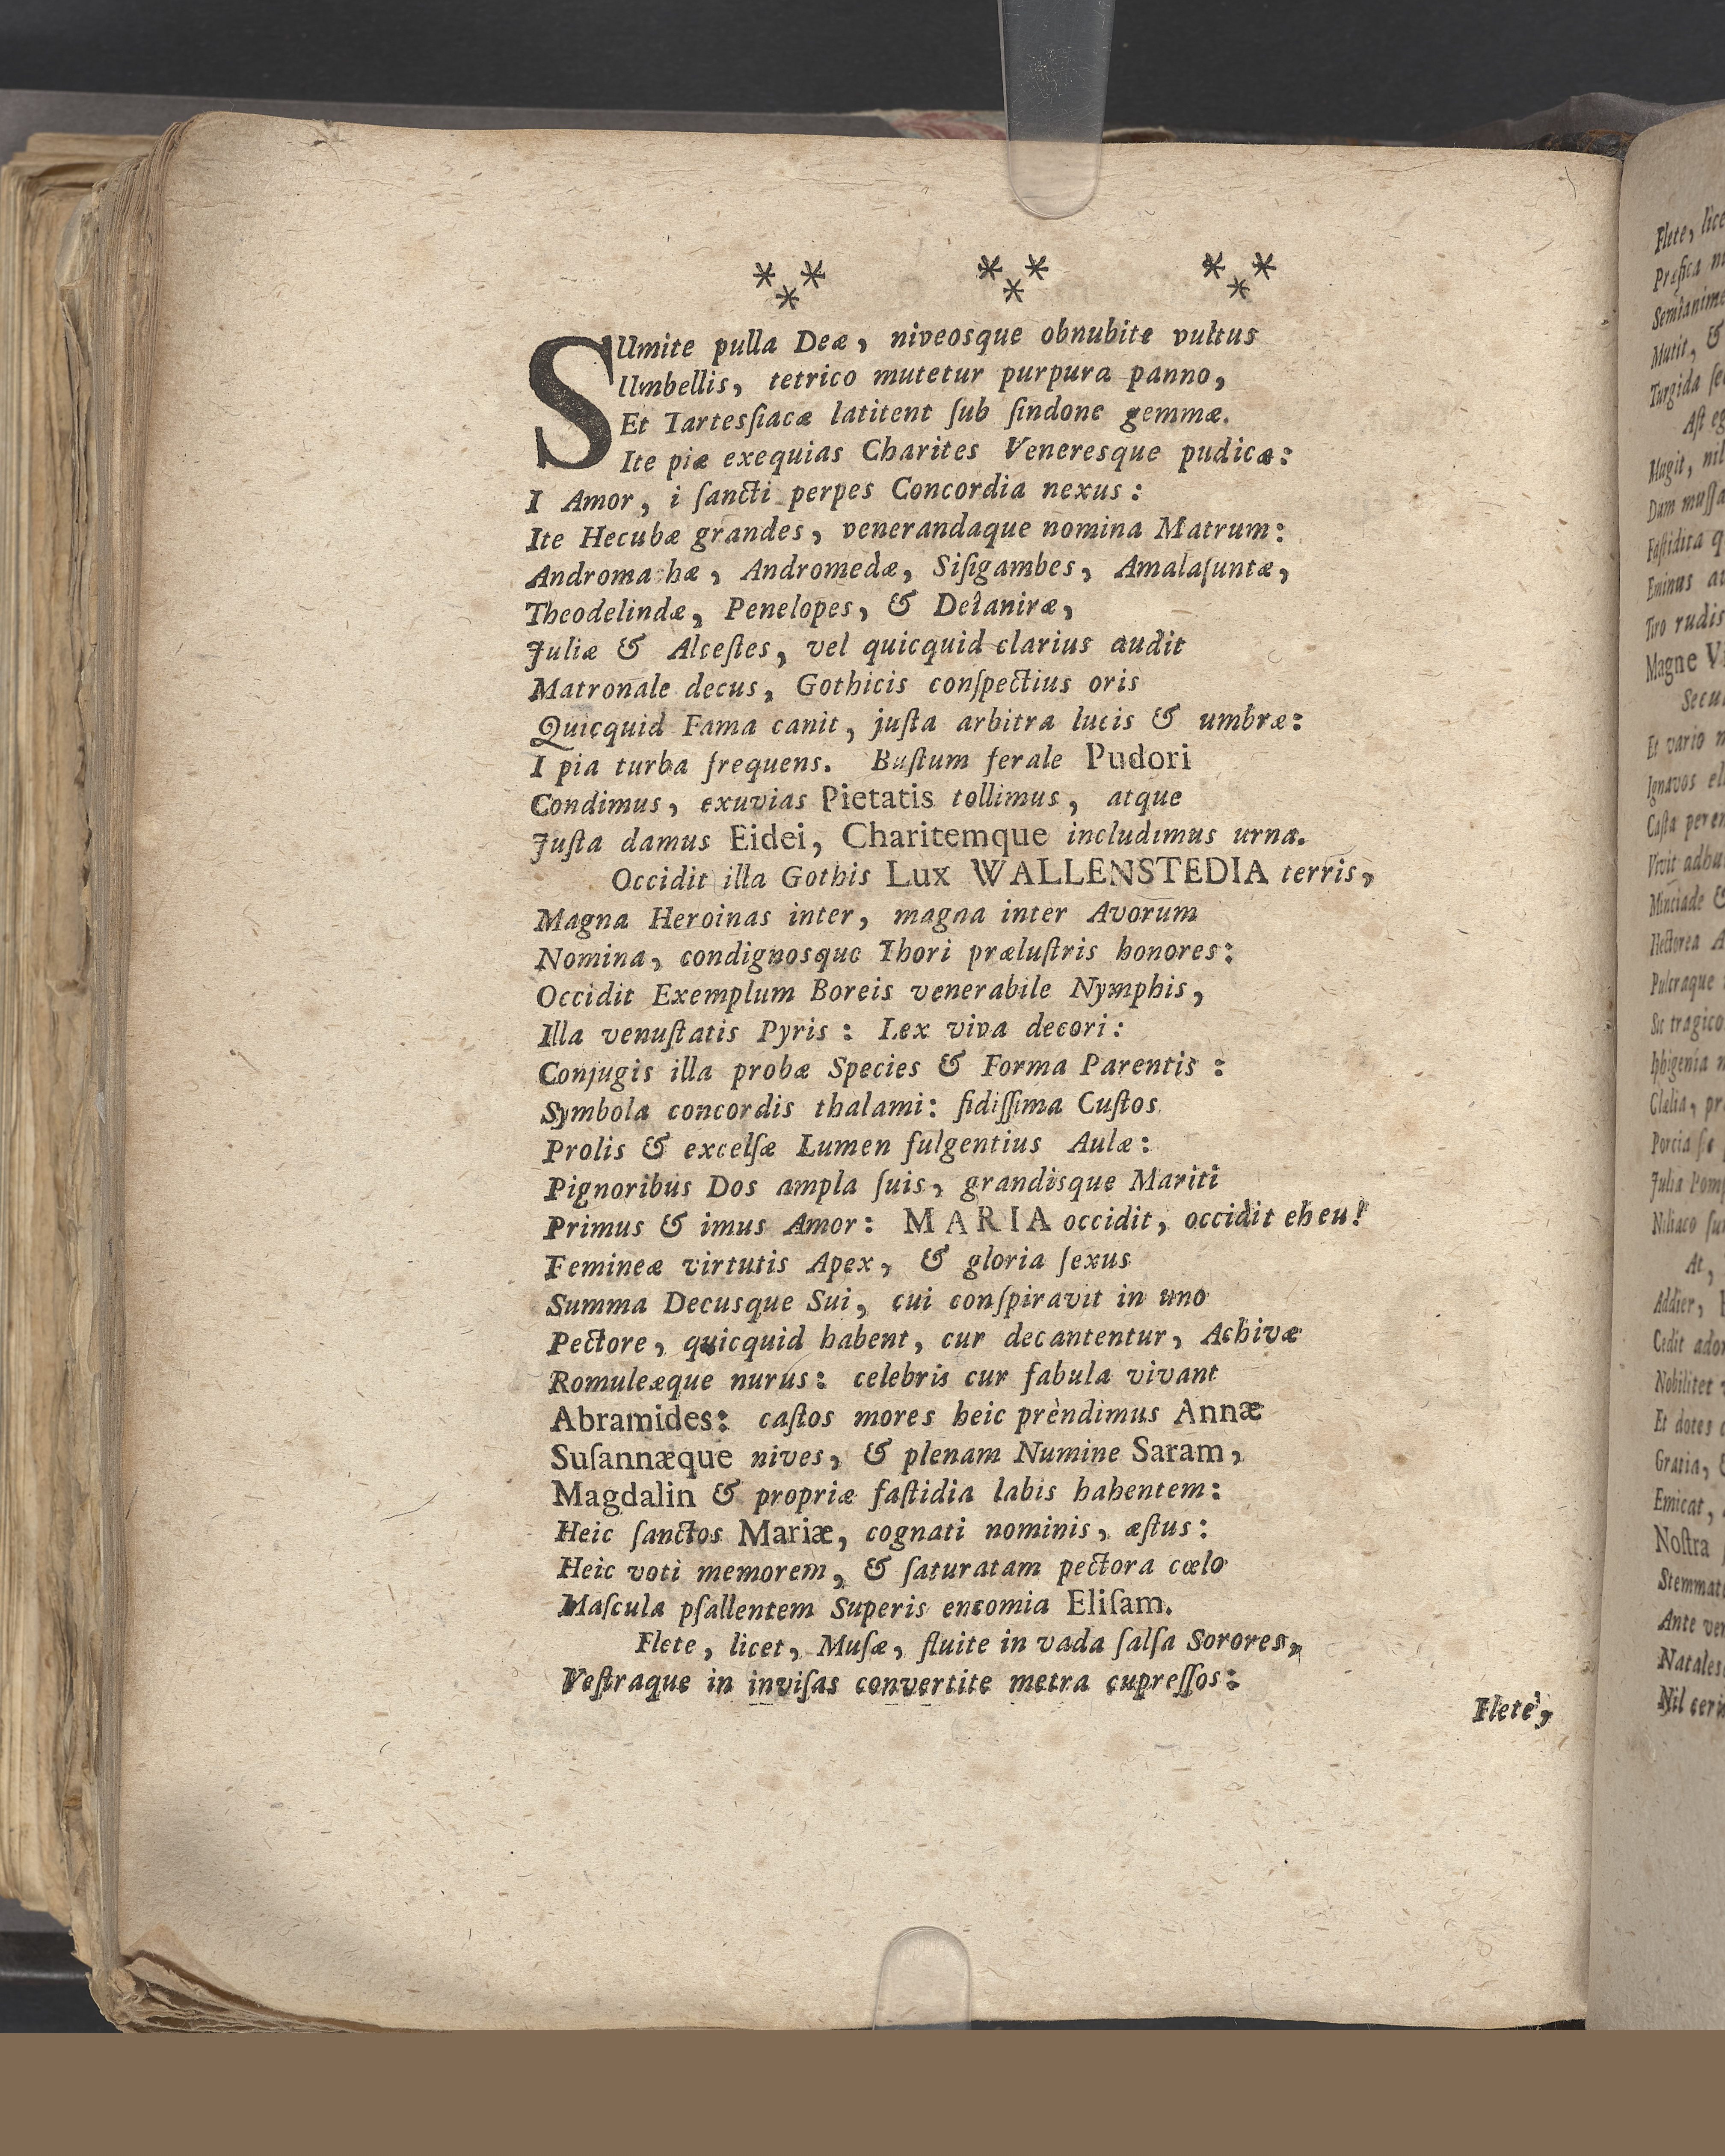 * * * * * * * * *
SUmite pulla Deæ, niveosque obnubite vultus
Umbellis, tetrico mutetur purpura panno,
Et Tartesſiacæ latitent ſub ſindone gemmæ.
Ite piæ exequias Charites Veneresque pudicæ:
I Amor, i ſancti perpes Concordia nexus:
Ite Hecubæ grandes, venerandaque nomina Matrum:
Andromachæ, Andromedæ, Siſigambes, Amalaſuntæ,
Theodelindæ, Penelopes, & Deianiræ,
Juliæ & Alceſtes, vel quicquid clarius audit
Matronale decus, Gothicis conſpectius oris
Quicquid Fama canit, juſta arbitra lucis & umbræ:
I pia turba frequens. Buſtum ferale Pudori
Condimus, exuvias Pietatis tollimus, atque
Juſta damus Eidei, Charitemque includimus urna.
Occidit illa Gothis Lux WALLENSTEDIA terris,
Magna Heroinas inter, magna inter Avorum
Nomina, condignosque Thori præluſtris honores:
Occidit Exemplum Boreis venerabile Nymphis,
Illa venuſtatis Pyris: Lex viva decori:
Conjugis illa probæ Species & Forma Parentis:
Symbola concordis thalami: fidiſſima Cuſtos
Prolis & excelſæ Lumen fulgentius Aulæ:
Pignoribus Dos ampla ſuis, grandisque Mariti
Primus & imus Amor: MARIA occidit, occidit eheu!
Femineæ virtutis Apex, & gloria ſexus
Summa Decusque Sui, cui conſpiravit in uno
Pectore, quicquid habent, cur decantentur, Achivæ
Romuleæque nurus: celebris cur fabula vivant
Abramides: caſtos mores heic prèndimus Annæ
Suſannæque nives, & plenam Numine Saram,
Magdalin & propriæ faſtidia labis habentem:
Heic ſanctos Mariæ, cognati nominis, æſtus:
Heic voti memorem, & ſaturatam pectora cœlo
Maſcula pſallentem Superis encomia Eliſam.
Flete, licet, Muſæ, fluite in vada ſalſa Sorores,
Veſtraque in inviſas convertite metra cupreſſos:
Flete,
Flete, lice
Semianime
Mutit, &
Turgida
Magne
Et vario
Ignavos
Hectorea
Pulcraque
Sic tragico
Iphigenia
Clælia,
Porcia ſe
Julia
Niliaco
At,
Addier,
Cedit
Nobilitet
Et dotes
Gratia,
Emicat,
Noſtra
Ante
Nil